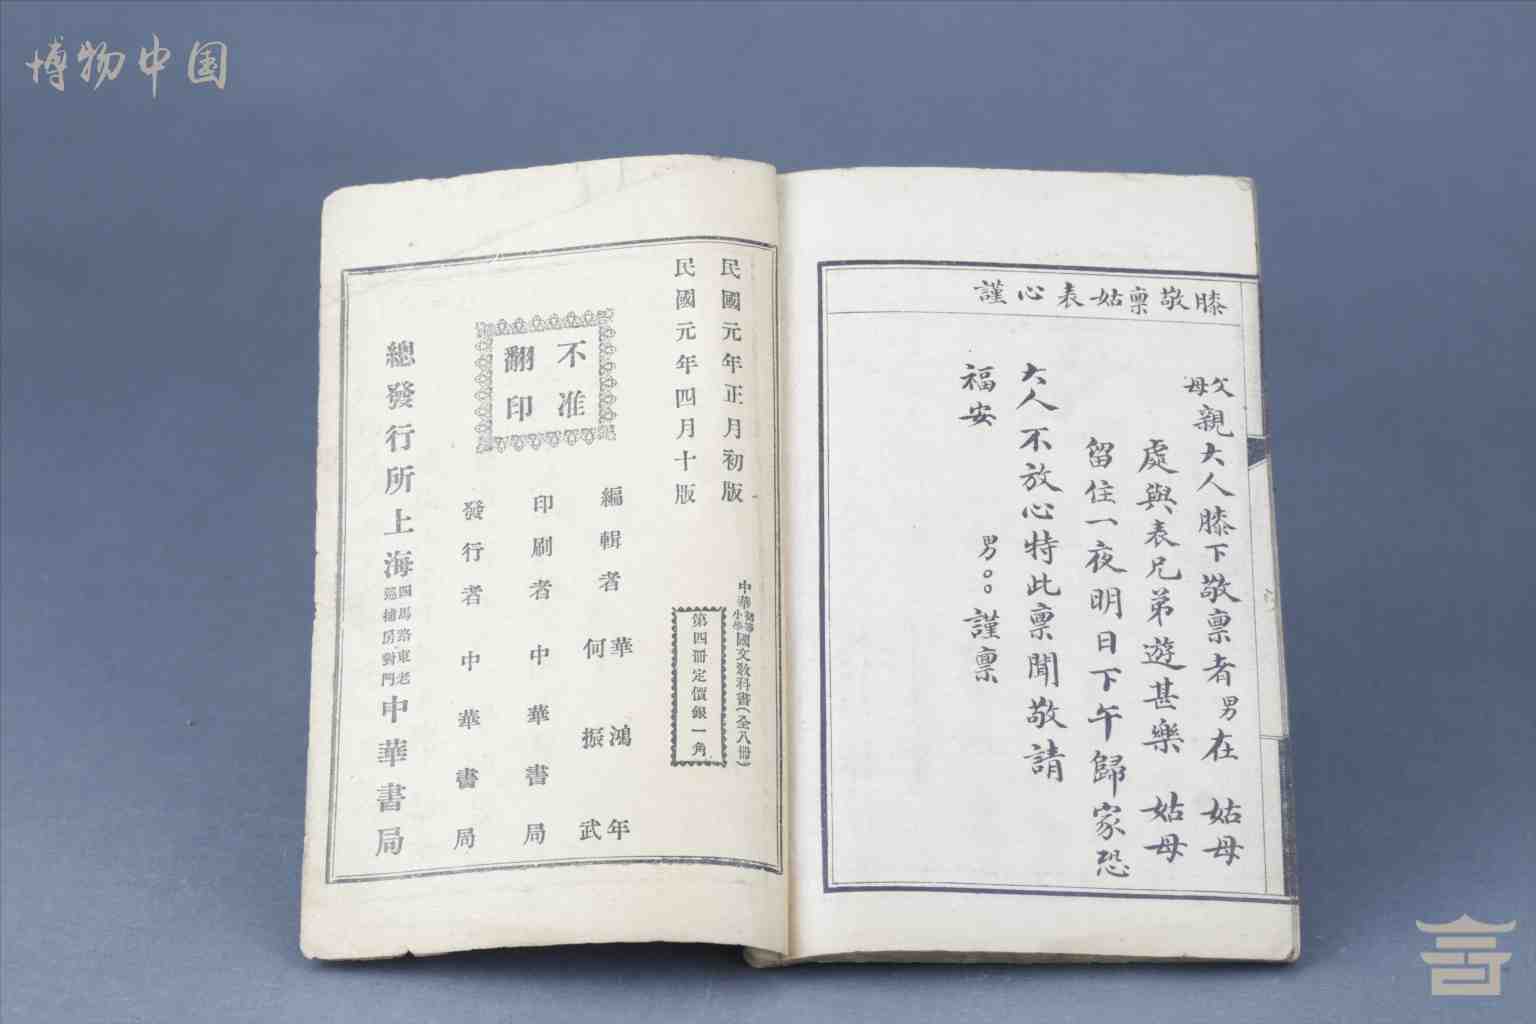 博物中国
膝敬稟姑表心謹
父母親大人膝下敬稟者男在 姑母
處與表兄弟遊甚樂 姑母
留住一夜明日下午歸家恐
大人不放心特此稟聞敬請
福安
男○○謹稟
民國元年正月初版
民國元年四月十版
中華初等小學國文教科書(全八冊)
第四冊定價銀一角
不准
翻印
編輯者 華鴻年
何振武
印刷者 中華書局
發行者 中華書局
總發行所上海四馬路東老巡捕房對門中華書局